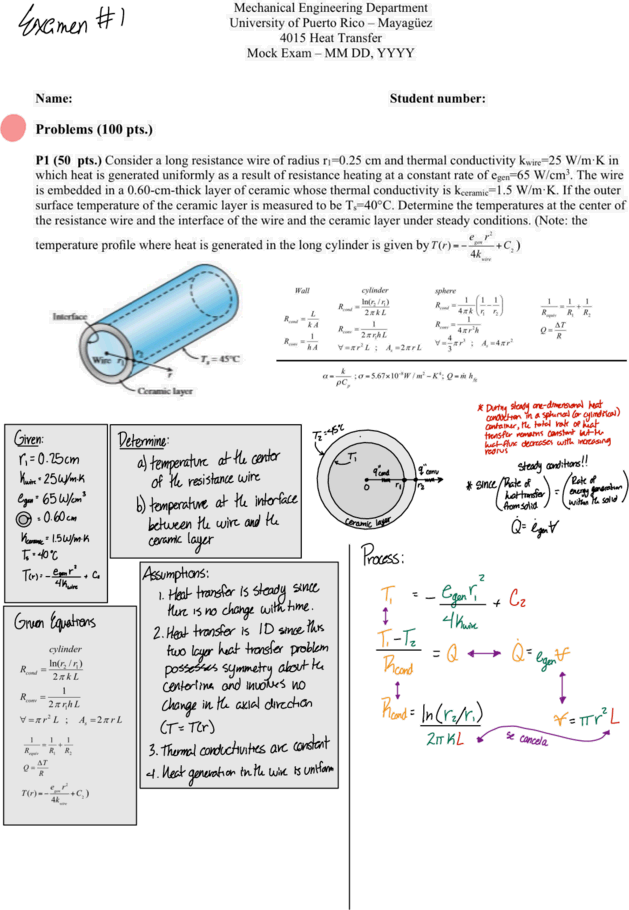 Examen #1
Mechanical Engineering Department
University of Puerto Rico – Mayagüez
4015 Heat Transfer
Mock Exam – MM DD, YYYY
Name: Student number:
Problems (100 pts.)
P1 (50 pts.) Consider a long resistance wire of radius r₁=0.25 cm and thermal conductivity k_wire=25 W/m·K in
which heat is generated uniformly as a result of resistance heating at a constant rate of e_gen=65 W/cm³. The wire
is embedded in a 0.60-cm-thick layer of ceramic whose thermal conductivity is k_ceramic=1.5 W/m·K. If the outer
surface temperature of the ceramic layer is measured to be Tₛ=40°C. Determine the temperatures at the center of
the resistance wire and the interface of the wire and the ceramic layer under steady conditions. (Note: the
temperature profile where heat is generated in the long cylinder is given by T(r) = - e_gen r² / 4k_wire + C₂)
Interface
Wire r₁ r₂
r
Tₛ = 45°C
Ceramic layer
Wall
R_cond = L / k A
R_conv = 1 / h A
cylinder
R_cond = ln(r₂ / r₁) / 2 π k L
R_conv = 1 / 2 π r₁ h L
∀ = π r² L ; Aₛ = 2 π r L
sphere
R_cond = 1 / 4 π k (1/r₁ - 1/r₂)
R_conv = 1 / 4 π r² h
∀ = 4/3 π r³ ; Aₛ = 4 π r²
1/R_equiv = 1/R₁ + 1/R₂
Q = ΔT / R
α = k / ρC_p ; σ = 5.67x10⁻⁸ W / m² – K⁴; Q = ṁ h_fg
Given:
r₁ = 0.25cm
K_wire = 25W/m·K
e_gen = 65W/cm³
= 0.60cm
K_ceramic = 1.5W/m·K
Tₛ = 40°C
T(r) = - e_gen r² / 4K_wire + C₂
Determine:
a) temperature at the center
of the resistance wire
b) temperature at the interface
between the wire and the
ceramic layer
T₂=45°C
T₁
q̇cond
q̇conv
0 r₁ r₂
ceramic layer
* During steady one-dimensional heat
conduction in a spherical (or cylindrical)
container, the total rate of heat
transfer remains constant but the
heat flux decreases with increasing
radius
steady conditions!!
* since (Rate of heat transfer from solid) = (Rate of energy generation within the solid)
Q̇ = ė_gen ∀
Given Equations
cylinder
R_cond = ln(r₂ / r₁) / 2 π k L
R_conv = 1 / 2 π r₁ h L
∀ = π r² L ; Aₛ = 2 π r L
1/R_equiv = 1/R₁ + 1/R₂
Q = ΔT / R
T(r) = - e_gen r² / 4k_wire + C₂)
Assumptions:
1. Heat transfer is steady since
there is no change with time.
2. Heat transfer is 1D since this
two layer heat transfer problem
possesses symmetry about the
centerline and involves no
change in the axial direction
(T = T(r))
3. Thermal conductivities are constant
4. Heat generation in the wire is uniform
Process:
T₁ = - e_gen r₁² / 4K_wire + C₂
T₁-T₂ / R_cond = Q Q̇ = e_gen ∀
R_cond = ln(r₂/r₁) / 2πKL ∀ = πr²L
se cancela